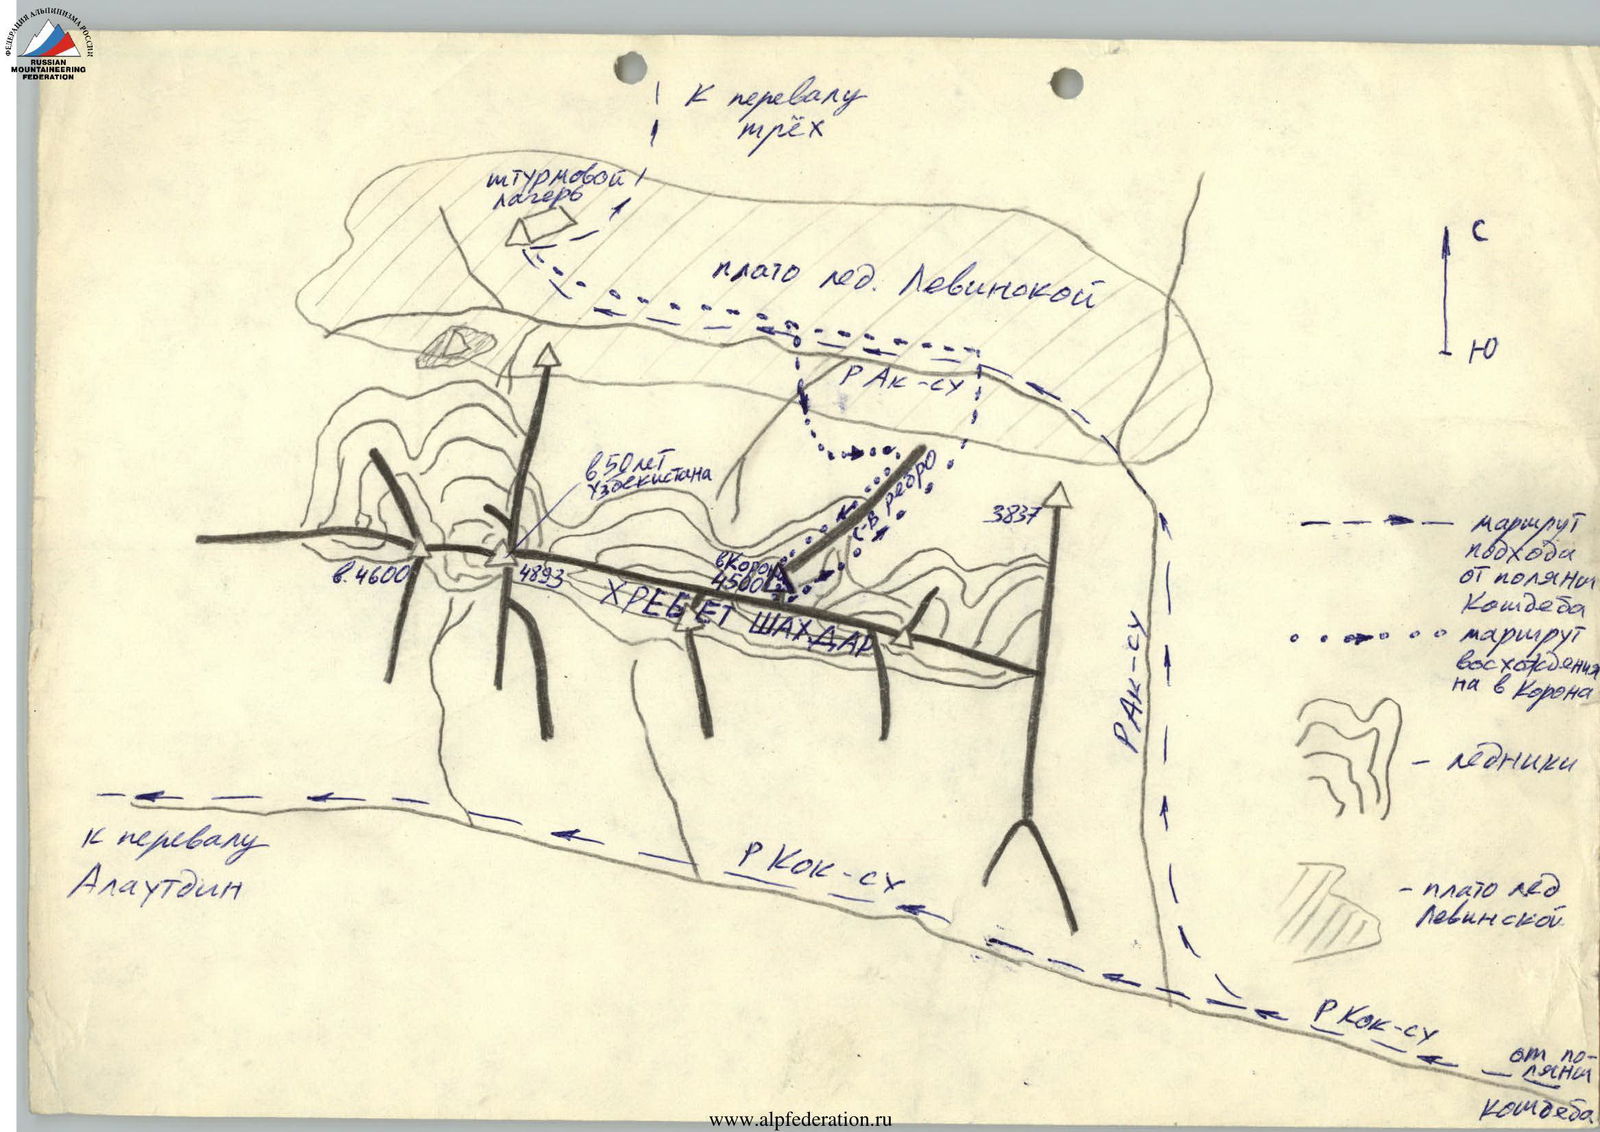 ФЕДЕРАЦИЯ АЛЬПИНИЗМА РОССИИ
RUSSIAN
MOUNTAINEERING
FEDERATION
к перевалу
трёх
штурмовой
лагерь
плато лед. Левинской
С
Ю
Р Ак-су
в 50 лет
Узбекистана
с-в ребро
3837
в Корона
4500
в. 4600
4893
ХРЕБЕТ ШАХДАР
маршрут
подхода
от поляны
Кошдеба
маршрут
восхождения
на в Корона
Р Ак-су
- ледники
к перевалу
Алаутдин
Р Кок-су
- плато лед
Левинской
Р Кок-су
от по-
ляны
Кошдеба
www.alpfederation.ru